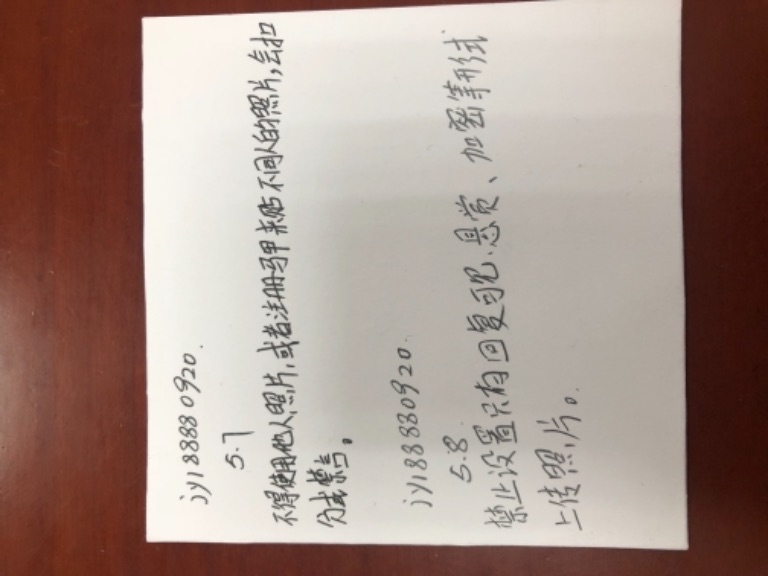 jy18880920.
5.7
不得使用他人照片,或者注册马甲来贴不同人的照片,会扣
分或禁言。
jy188880920.
5.8
禁止设置只有回复可见、悬赏、加密等形式
上传照片。